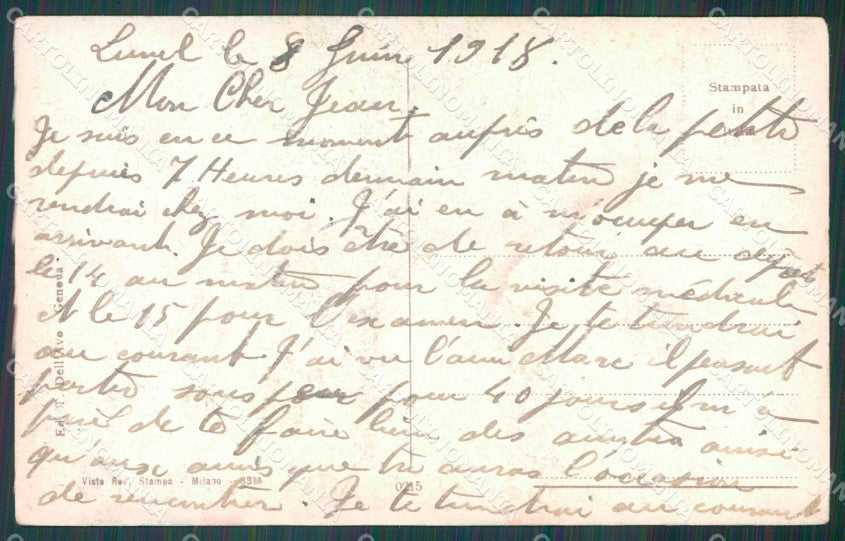 Lunel le 8 Juin 1918.
Mon Cher Jean.
Je suis en ce moment auprès de la petite
depuis 7 Heures demain matin je me
rendrai chez moi. J'ai eu à m'occuper en
arrivant. Je dois être de retour au dépot
le 14 au matin pour la visite médicale
et le 15 pour l'examen. Je te tiendrai
au courant J'ai vu l'ami Marc il pensait
partir sous peu pour 40 jours il m'a
prié de te faire bien des amitiés ainsi
qu'aux amis que tu auras l'occasion
de rencontrer. Je te tiendrai au courant
Stampata
in
Ed. T. Dell'Avo - Genova
Visto Rev. Stampa - Milano 3314
0215
CARTOLINOMANIA